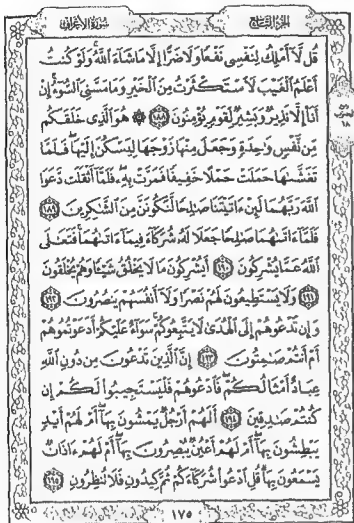 الجُزْءُ التَّاسِعُ سُورَةُ الأَعْرَافِ
قُل لَّآ أَمْلِكُ لِنَفْسِى نَفْعًا وَلَا ضَرًّا إِلَّا مَا شَآءَ ٱللَّهُ وَلَوْ كُنتُ
أَعْلَمُ ٱلْغَيْبَ لَٱسْتَكْثَرْتُ مِنَ ٱلْخَيْرِ وَمَا مَسَّنِىَ ٱلسُّوٓءُ إِنْ
أَنَا۠ إِلَّا نَذِيرٌ وَبَشِيرٌ لِّقَوْمٍ يُؤْمِنُونَ ١٨٨ ۞ هُوَ ٱلَّذِى خَلَقَكُم
مِّن نَّفْسٍ وَٰحِدَةٍ وَجَعَلَ مِنْهَا زَوْجَهَا لِيَسْكُنَ إِلَيْهَا فَلَمَّا
تَغَشَّىٰهَا حَمَلَتْ حَمْلًا خَفِيفًا فَمَرَّتْ بِهِۦ فَلَمَّآ أَثْقَلَت دَّعَوَا
ٱللَّهَ رَبَّهُمَا لَئِنْ ءَاتَيْتَنَا صَٰلِحًا لَّنَكُونَنَّ مِنَ ٱلشَّٰكِرِينَ ١٨٩
فَلَمَّآ ءَاتَىٰهُمَا صَٰلِحًا جَعَلَا لَهُۥ شُرَكَآءَ فِيمَآ ءَاتَىٰهُمَا فَتَعَٰلَى
ٱللَّهُ عَمَّا يُشْرِكُونَ ١٩٠ أَيُشْرِكُونَ مَا لَا يَخْلُقُ شَيْـًٔا وَهُمْ يُخْلَقُونَ
١٩١ وَلَا يَسْتَطِيعُونَ لَهُمْ نَصْرًا وَلَآ أَنفُسَهُمْ يَنصُرُونَ ١٩٢
وَإِن تَدْعُوهُمْ إِلَى ٱلْهُدَىٰ لَا يَتَّبِعُوكُمْ سَوَآءٌ عَلَيْكُمْ أَدَعَوْتُمُوهُمْ
أَمْ أَنتُمْ صَٰمِتُونَ ١٩٣ إِنَّ ٱلَّذِينَ تَدْعُونَ مِن دُونِ ٱللَّهِ
عِبَادٌ أَمْثَالُكُمْ فَٱدْعُوهُمْ فَلْيَسْتَجِيبُوا۟ لَكُمْ إِن
كُنتُمْ صَٰدِقِينَ ١٩٤ أَلَهُمْ أَرْجُلٌ يَمْشُونَ بِهَآ أَمْ لَهُمْ أَيْدٍ
يَبْطِشُونَ بِهَآ أَمْ لَهُمْ أَعْيُنٌ يُبْصِرُونَ بِهَآ أَمْ لَهُمْ ءَاذَانٌ
يَسْمَعُونَ بِهَا قُلِ ٱدْعُوا۟ شُرَكَآءَكُمْ ثُمَّ كِيدُونِ فَلَا تُنظِرُونِ ١٩٥
١٧٥